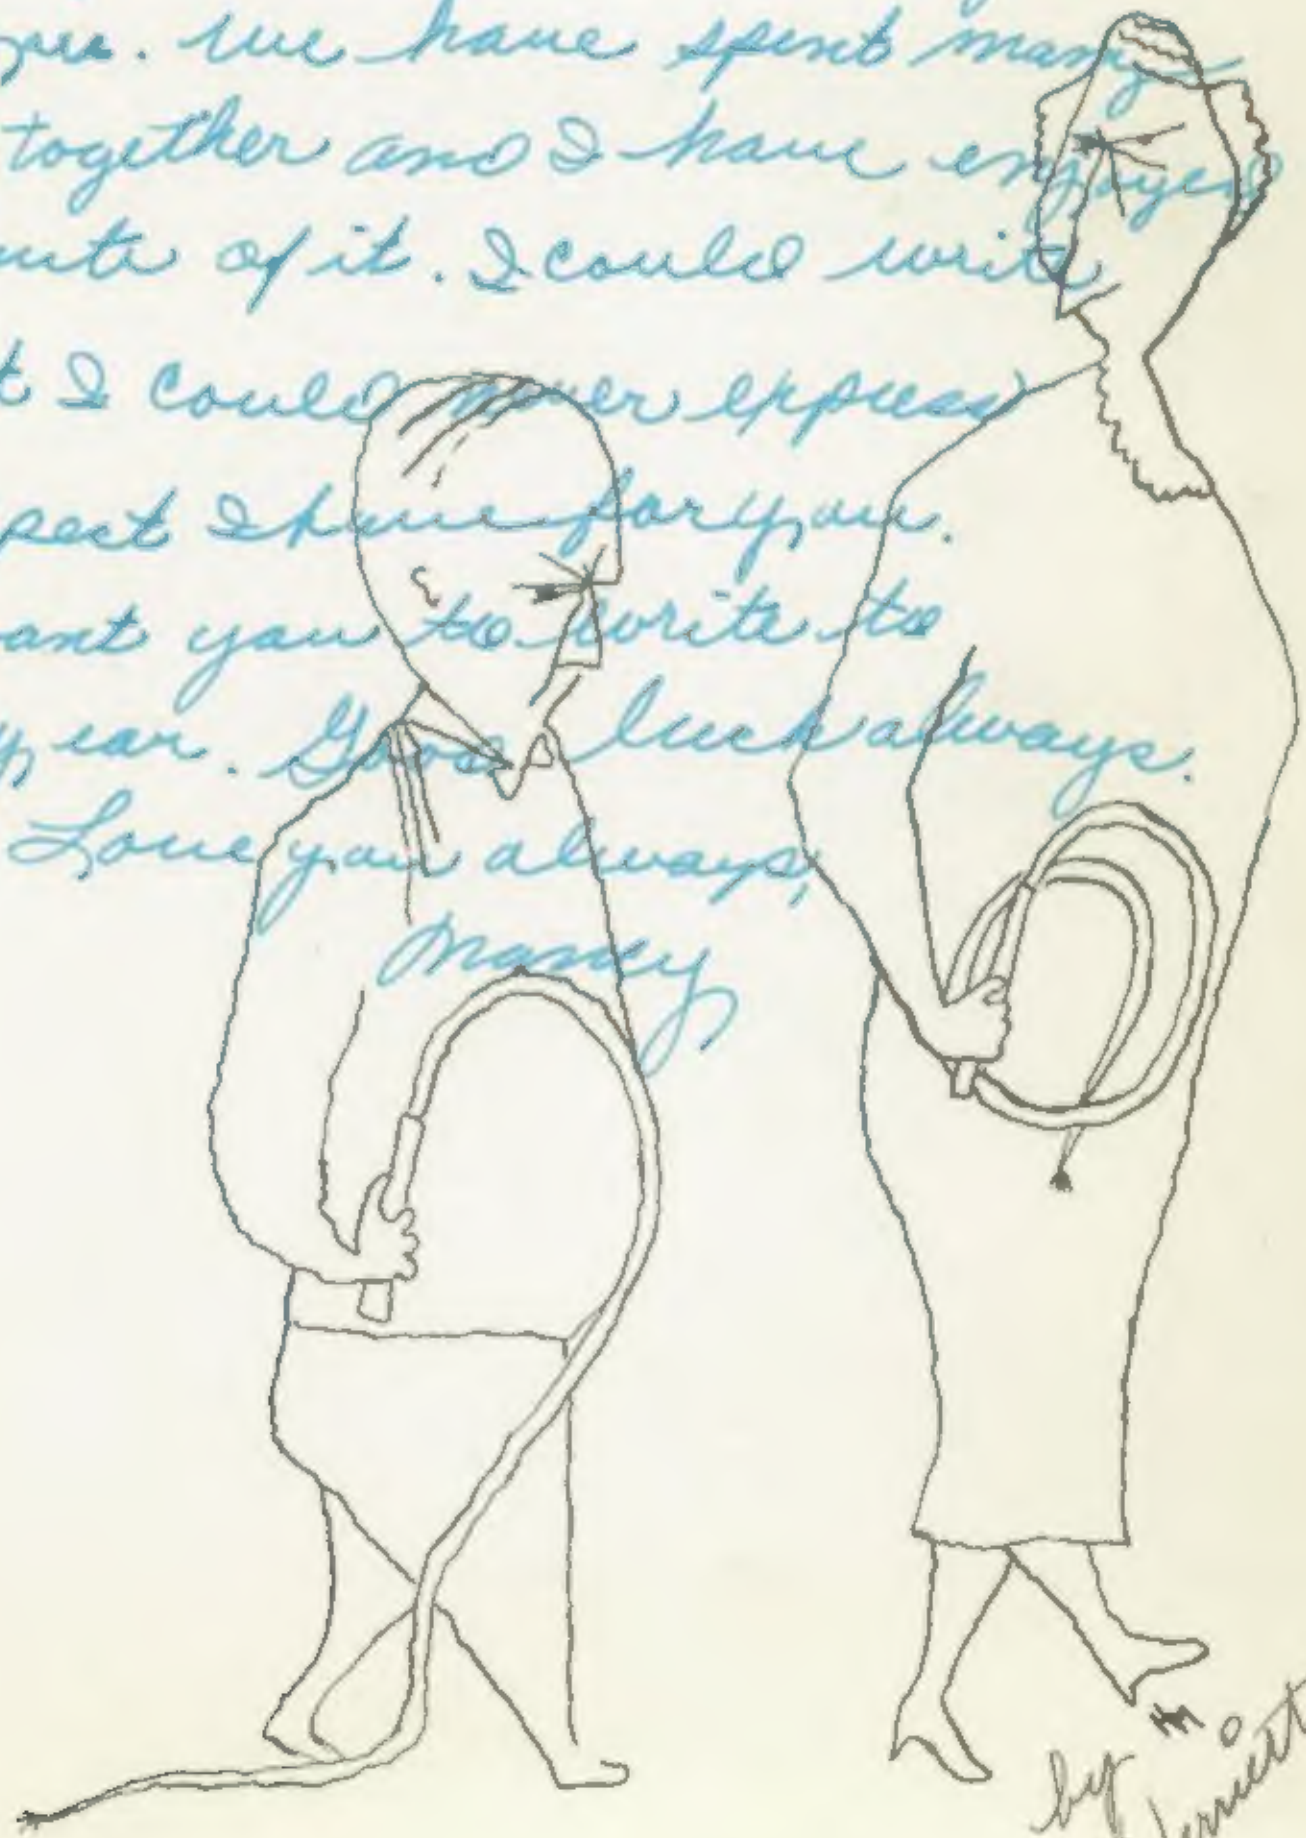 you. We have spent many
together and I have enjoyed
of it. I could write
I could never express
I have for you.
you to write to
year. Good luck always.
Love you always,
Nancy
by